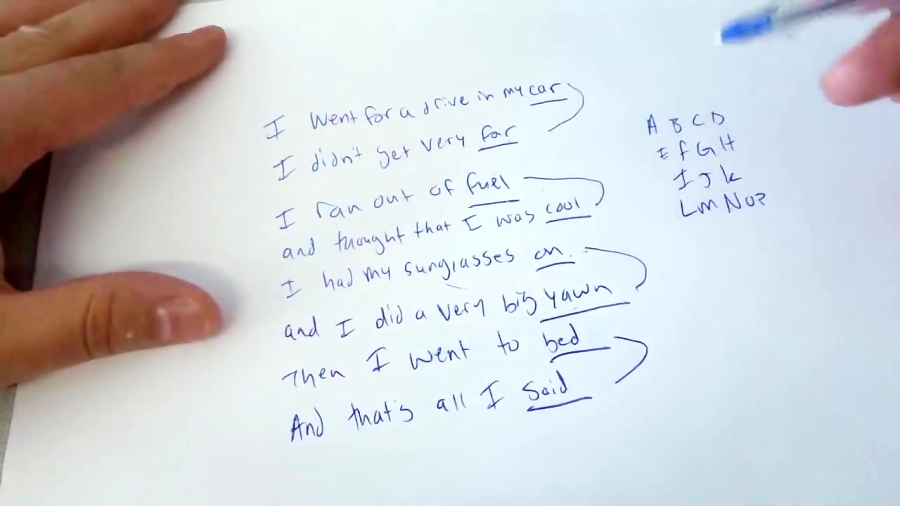 I went for a drive in my car
I didn't get very far
I ran out of fuel
and thought that I was cool
I had my sunglasses on.
and I did a very big yawn
Then I went to bed
And that's all I said
A B C D
E F G H
I J K
L M N O P